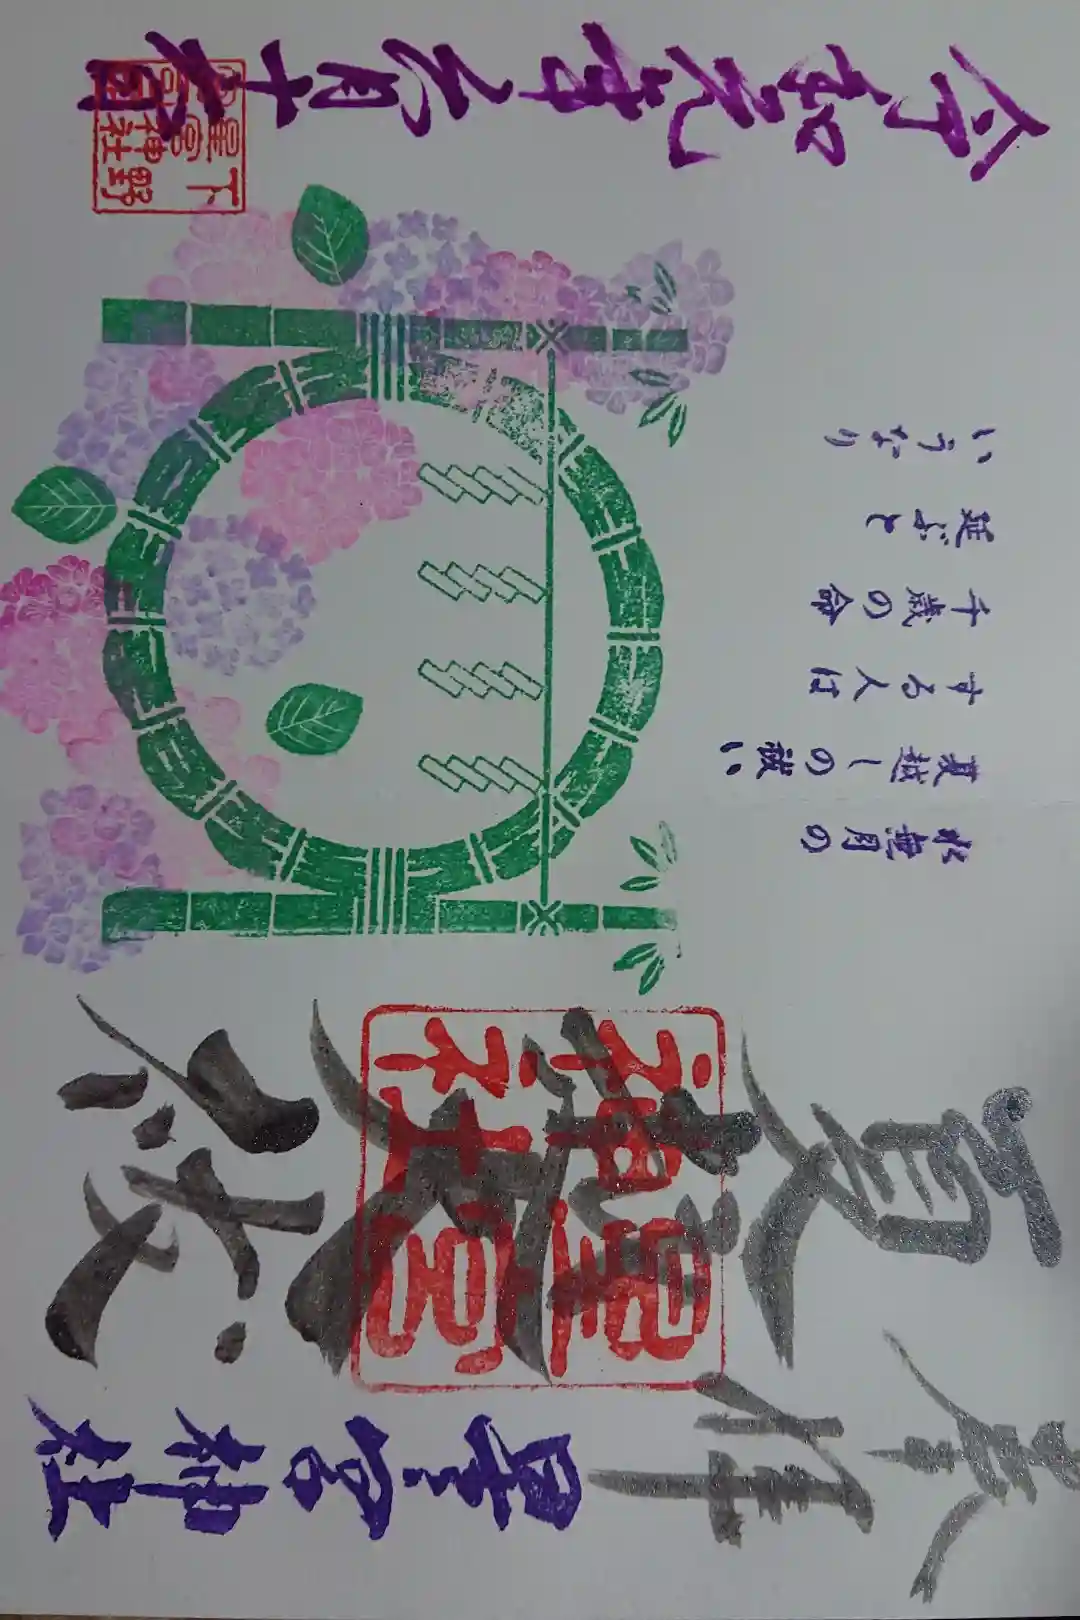 奉拝
星宮神社
夏越大祓
星宮
神社
水無月の
夏越しの祓い
する人は
千歳の命
延ぶと
いうなり
令和元年六月十
下野
星宮神社